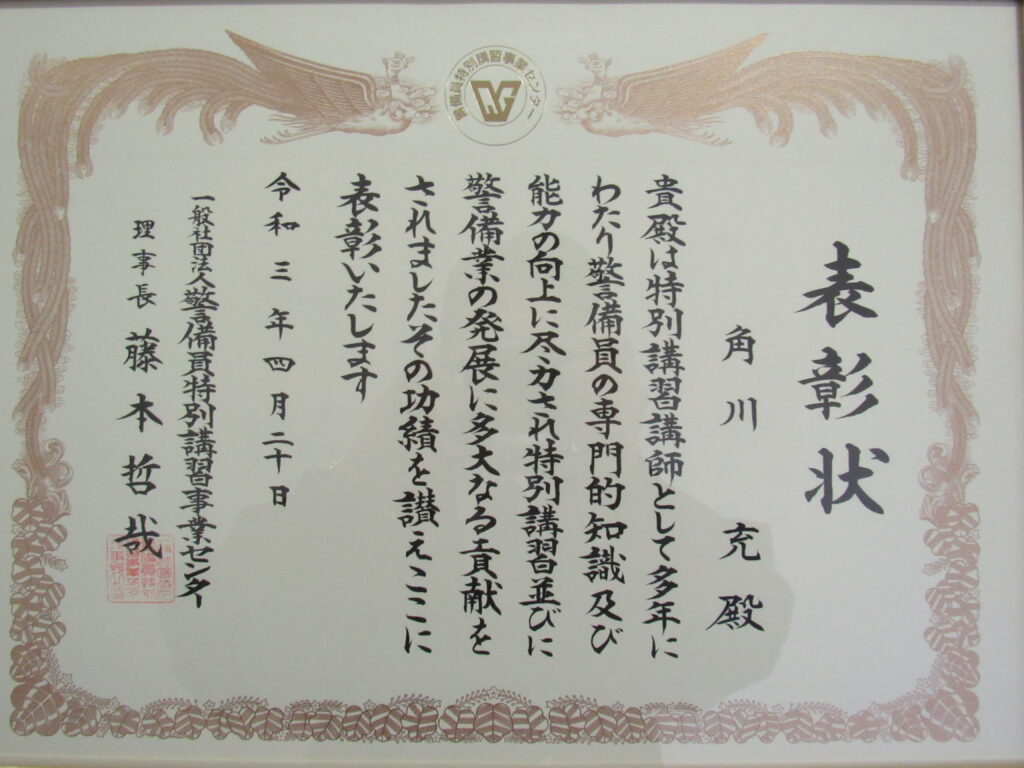 警備員特別講習事業センター
表彰状
角川 充 殿
貴殿は特別講習講師として多年に
わたり警備員の専門的知識及び
能力の向上に尽力され特別講習並びに
警備業の発展に多大なる貢献を
されましたその功績を讃えここに
表彰いたします
令和三年四月二十日
一般社団法人警備員特別講習事業センター
理事長 藤本哲哉